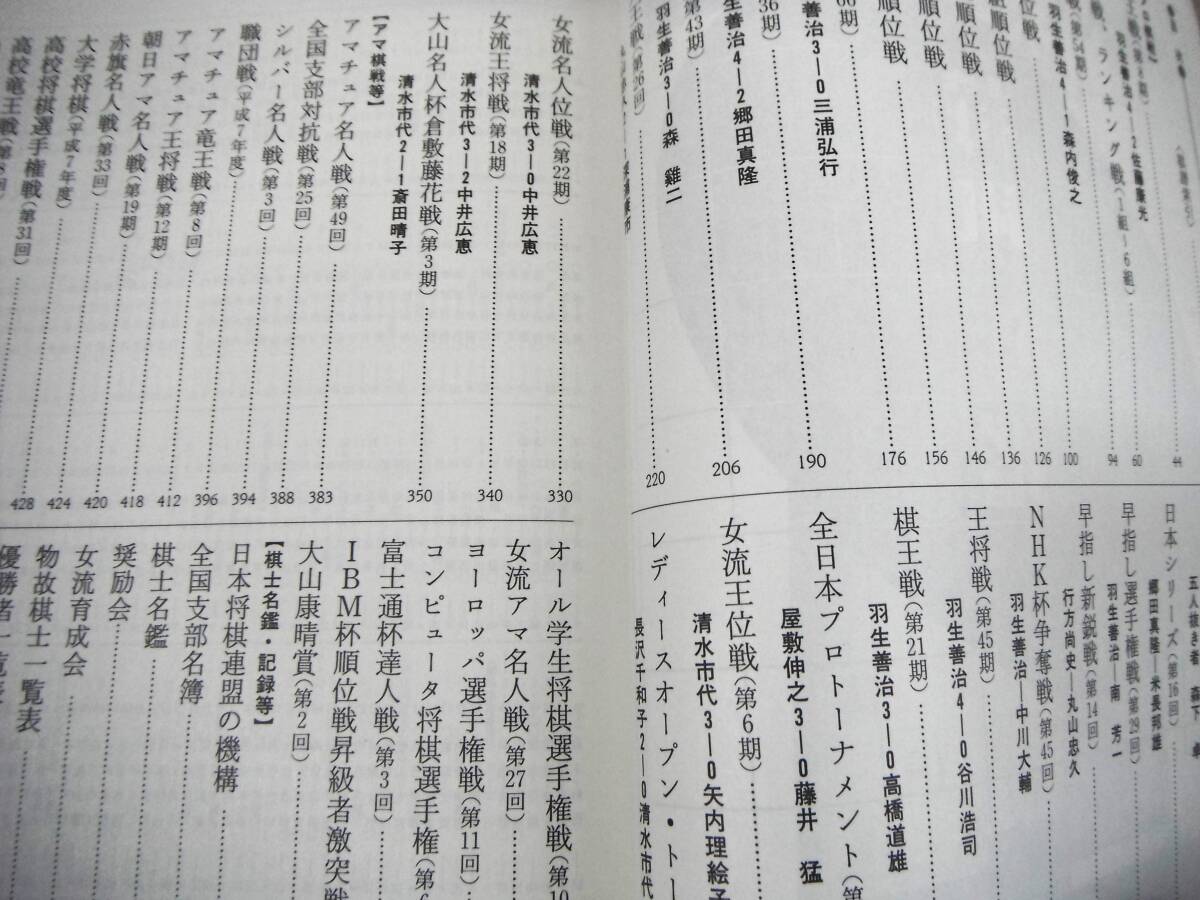 羽生善治4―2佐藤康光
44
戦、ランキング戦(1組～6組)
60
94
戦(第54期)
羽生善治4―1森内俊之
100
位戦
126
組順位戦
136
順位戦
146
順位戦
156
位戦
176
66期)
羽生善治3―0三浦弘行
190
36期)
羽生善治4―2郷田真隆
206
第43期)
羽生善治3―0森 雞二
王戦(第26期)
220
五人抜き者 森下 卓
日本シリーズ(第16回)
郷田真隆―米長邦雄
早指し選手権戦(第29回)
羽生善治―南 芳一
早指し新鋭戦(第14回)
行方尚史―丸山忠久
NHK杯争奪戦(第45回)
羽生善治―中川大輔
王将戦(第45期)
羽生善治4―0谷川浩司
棋王戦(第21期)
羽生善治3―0高橋道雄
全日本プロトーナメント(第
屋敷伸之3―0藤井 猛
女流王位戦(第6期)
清水市代3―0矢内理絵子
レディースオープン・トー
長沢千和子2―0清水市代
女流名人位戦(第22期)
330
清水市代3―0中井広恵
女流王将戦(第18期)
340
清水市代3―2中井広恵
大山名人杯倉敷藤花戦(第3期)
350
清水市代2―1斎田晴子
【アマ棋戦等】
アマチュア名人戦(第49回)
383
全国支部対抗戦(第25回)
388
シルバー名人戦(第3回)
394
職団戦(平成7年度)
396
アマチュア竜王戦(第8回)
412
アマチュア王将戦(第12期)
418
朝日アマ名人戦(第19期)
420
赤旗名人戦(第33回)
424
大学将棋(平成7年度)
428
高校将棋選手権戦(第31回)
高校竜王戦(第8回)
オール学生将棋選手権戦(第10
女流アマ名人戦(第27回)
ヨーロッパ選手権戦(第11回)
コンピュータ将棋選手権(第6
富士通杯達人戦(第3回)
IBM杯順位戦昇級者激突戦
大山康晴賞(第2回)
【棋士名鑑・記録等】
日本将棋連盟の機構
全国支部名簿
棋士名鑑
奨励会
女流育成会
物故棋士一覧表
優勝者一覧表